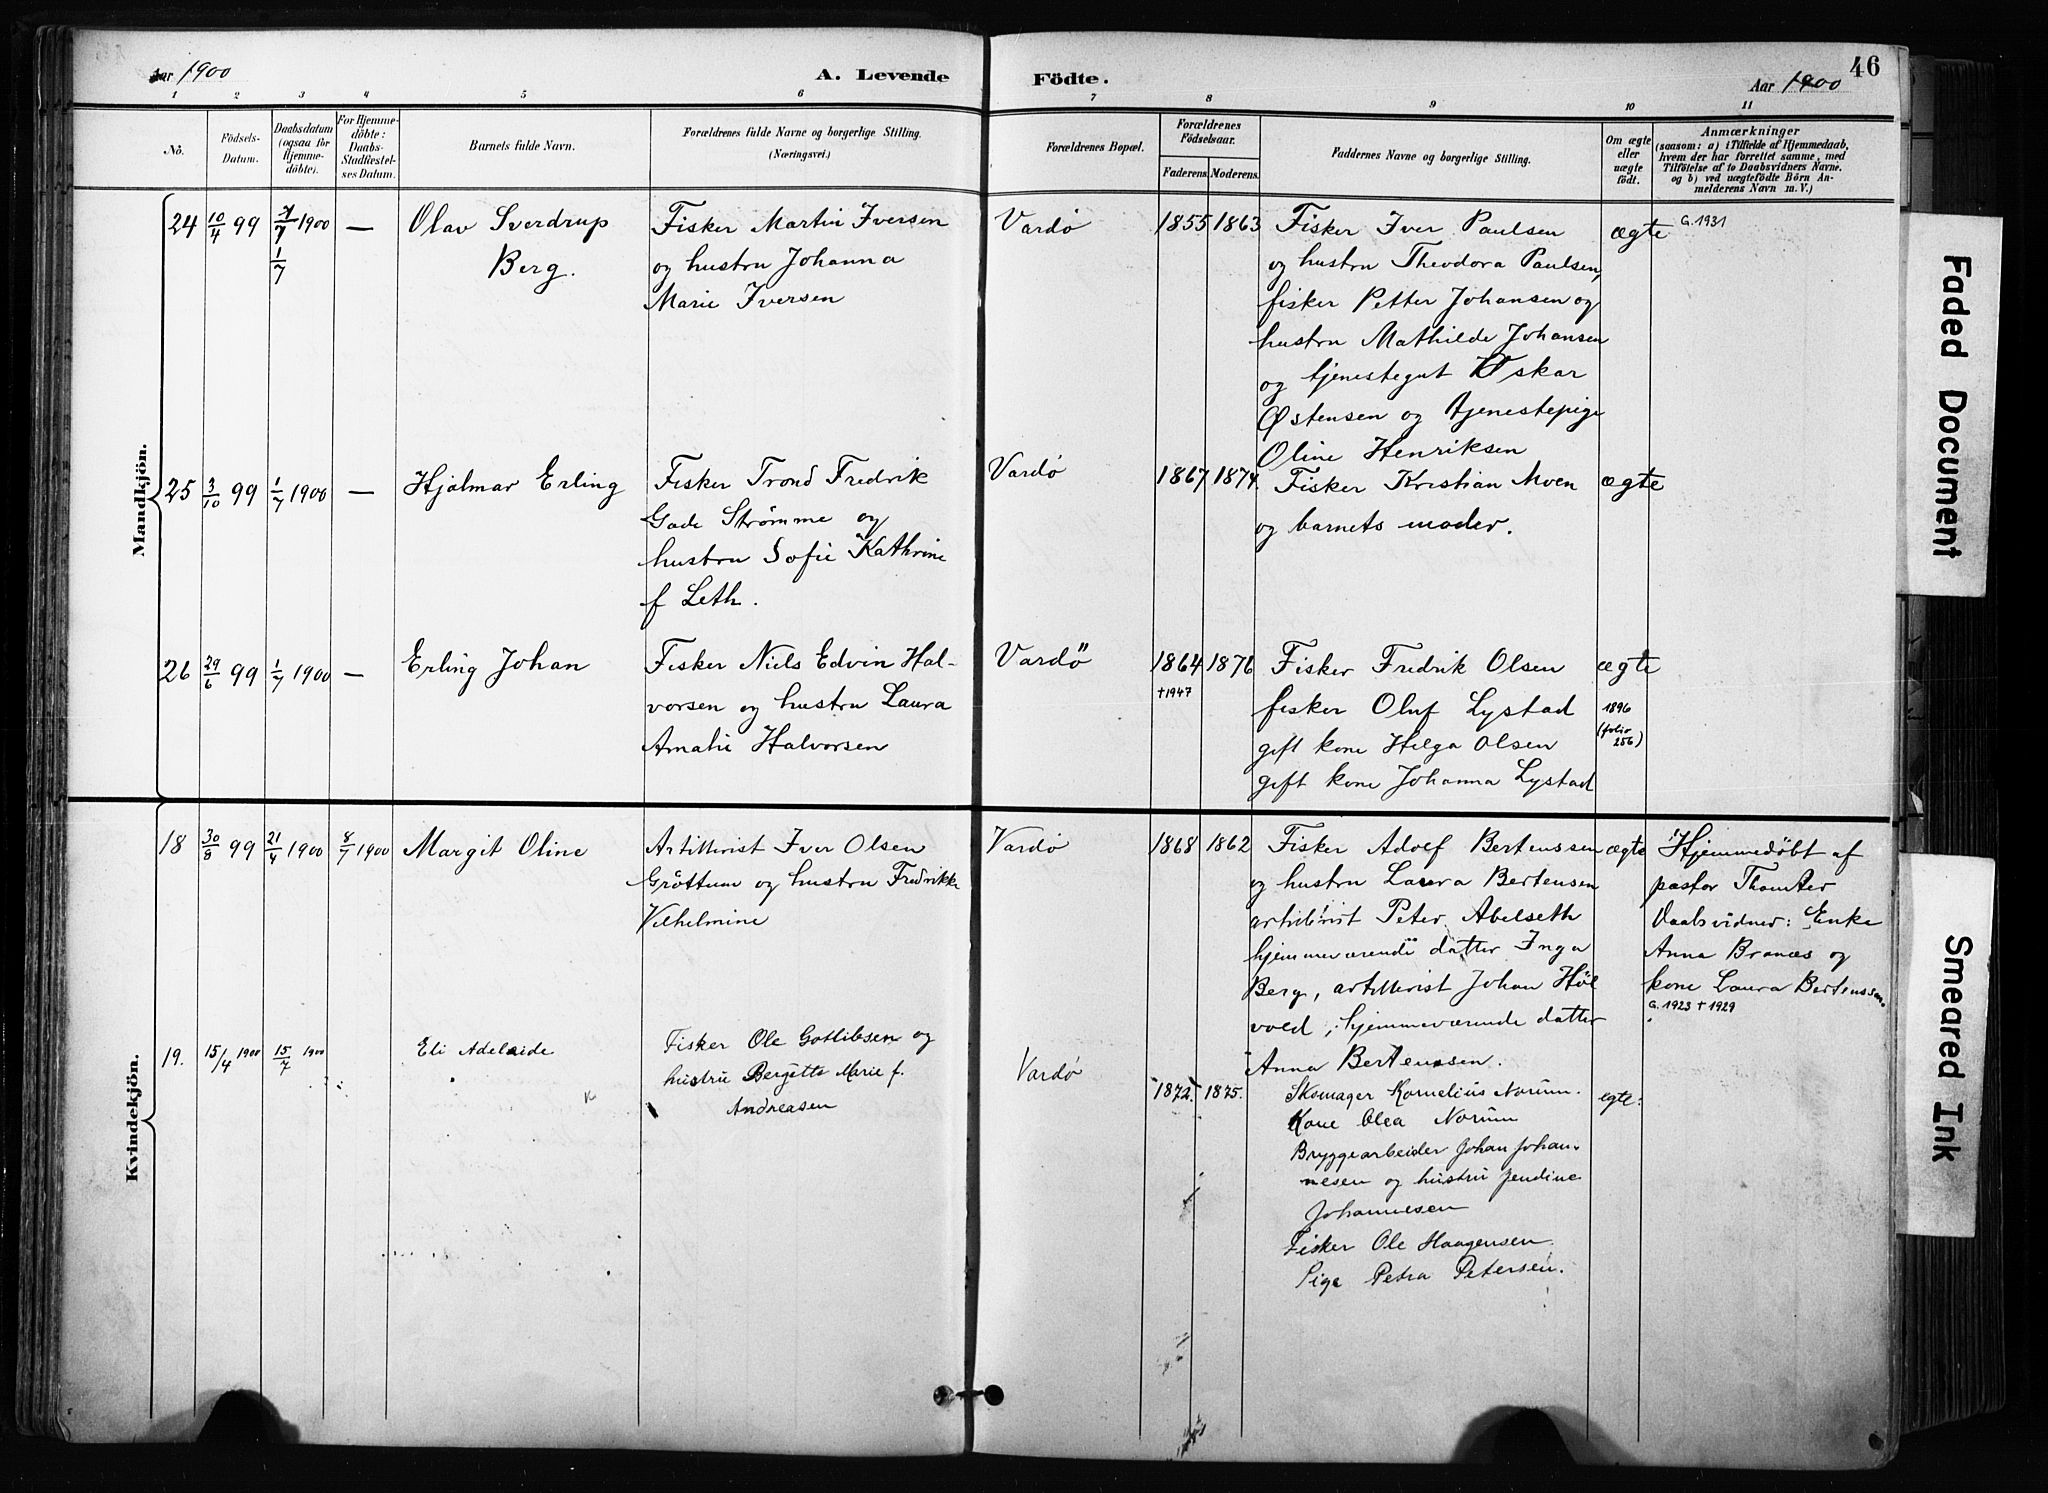 Aar 1900
A. Levende Födte.
Aar 1900
46
1 2 3 4 5 6 7 8 9 10 11
No.
Födsels-Datum.
Daabsdatum (ogsaa for Hjemmedöbte).
For Hjemmedöbte: Daabs-Stadfæstelses Datum.
Barnets fulde Navn.
Forældrenes fulde Navne og borgerlige Stilling.
(Næringsvei.)
Forældrenes Bopæl.
Forældrenes Födselsaar.
Faderens. Moderens.
Faddernes Navne og borgerlige Stilling.
Om ægte eller uægte födt.
Anmærkninger
(saasom: a) i Tilfælde af Hjemmedaab,
hvem der har forrettet samme, med
Tilföielse af to Daabsvidners Navne.
og b) ved uægtefödte Börn An-
melderens Navn m. V.)
Mandkjön.
24 10/4 99 1/7 1900 —
1/7
Olav Sverdrup
Berg.
Fisker Martin Iversen
og hustru Johanna
Marie Iversen
Vardø
1855 1863
Fisker Iver Paulsen
og hustru Theodora Paulsen,
fisker Petter Johansen og
hustru Mathilde Johansen
og tjenestegut Oskar
Østensen og tjenestepige
Oline Henriksen
ægte
G. 1931
25 3/10 99 1/7 1900 —
Hjalmar Erling
Fisker Trond Fredrik
Gade Strømme og
hustru Sofie Kathrine
f Leth.
Vardø
1867 1874.
Fisker Kristian Moen
og barnets moder.
ægte
26 29/6 99 1/7 1900 —
Erling Johan
Fisker Niels Edvin Hal-
vorsen og hustru Laura
Amalie Halvorsen
Vardø
1864 1876
†1947
Fisker Fredrik Olsen
fisker Oluf Lystad
gift kone Helga Olsen
gift kone Johanna Lystad
ægte
1896
(folio
256)
Kvindekjön.
18 30/8 99 21/4 1900 8/7 1900
Margit Oline
Artillerist Iver Olsen
Grøttum og hustru Fredrikke
Vilhelmine
Vardø
1868 1862
Fisker Adolf Bertenssen
og hustru Laura Bertensen
artillerist Peter Abelseth
hjemmeværende datter Inga
Berg, artillerist Johan Høl
vold, hjemmeværende datter
Anna Bertenssen.
ægte
Hjemmedøbt af
pastor
Daabsvidner: Enke
Anna Brånæs og
kone Laura Bertenssen.
G. 1923 † 1929
19. 15/4 1900 15/7 1900
Eli Adelaide
Fisker Ole Gotlibsen og
hustru Bergitte Marie f.
Andreasen
Vardø
1872. 1875.
Skomager Kornelius Norum.
Kone Olea Norum
Bryggearbeider Johan Johan-
nesen og hustru Jendine
Johannesen
Fisker Ole Haagensen.
Pige Petra Petersen.
egte.
Faded Document
Smeared Ink